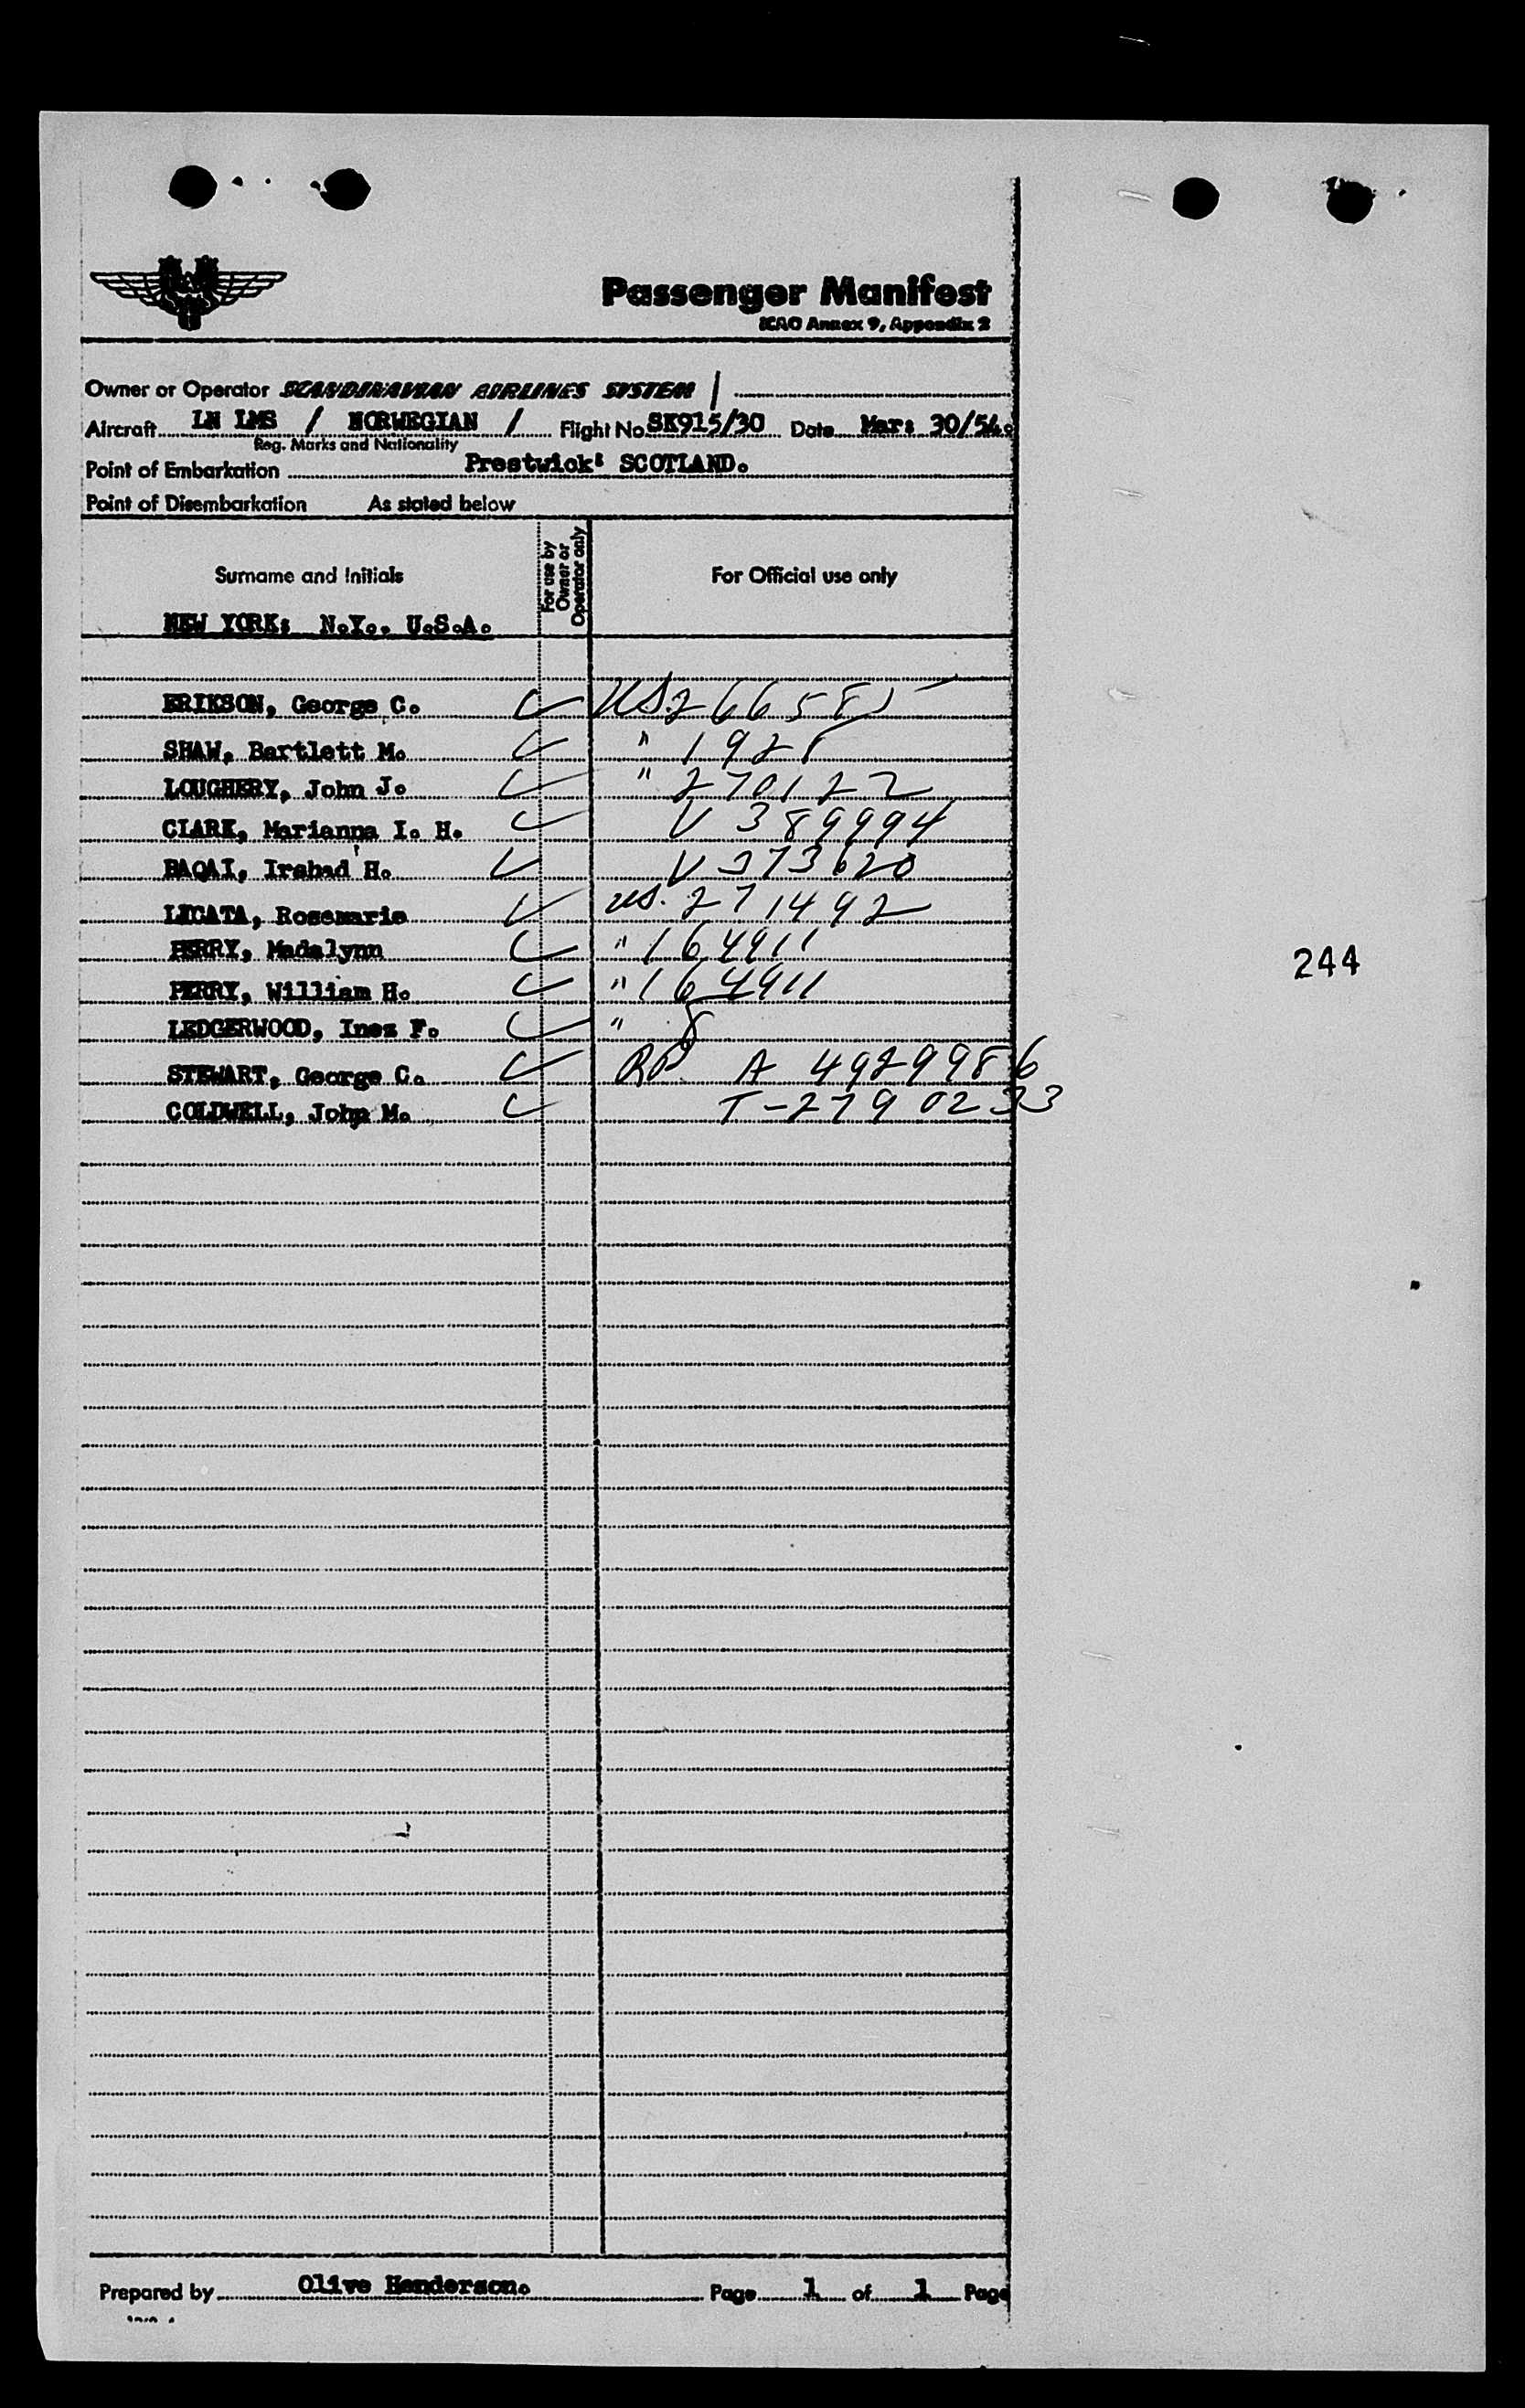 Passenger Manifest
ICAO Annex 9, Appendix 2
Owner or Operator SCANDINAVIAN AIRLINES SYSTEM /
Aircraft LN LMS / NORWEGIAN / Flight No. SK915/30 Date Mar: 30/54.
Reg. Marks and Nationality
Point of Embarkation Prestwick: SCOTLAND.
Point of Disembarkation As stated below
Surname and Initials For use by Owner or Operator only For Official use only
NEW YORK: N.Y., U.S.A.
ERIKSON, George C. US.
SHAW, Bartlett M. "
LOUGHERY, John J. " 270122
CLARK, Marianna I. H. V 389994
BAQAI, Irshad H. V 373620
LICATA, Rosemarie US. 271492
PERRY, Madalynn " 164911
PERRY, William H. " 164911
LEDGERWOOD, Inez F. " 8
STEWART, George C. RP A 4929986
COLDWELL, John M. T-2790233
244
Prepared by Olive Henderson. Page 1 of 1 Page